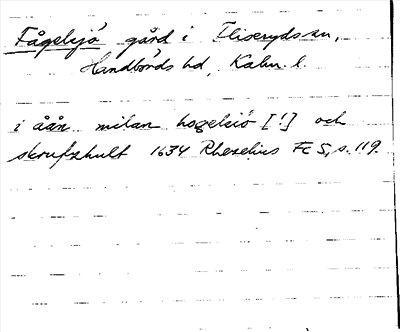 Fågelsjö gård i Fliserydssn,
Handbörds hd, Kalm. l.
i åån milan hogelsiö [!] och
skrufzhult 1634 Rhezelius Fc 5, s. 119.